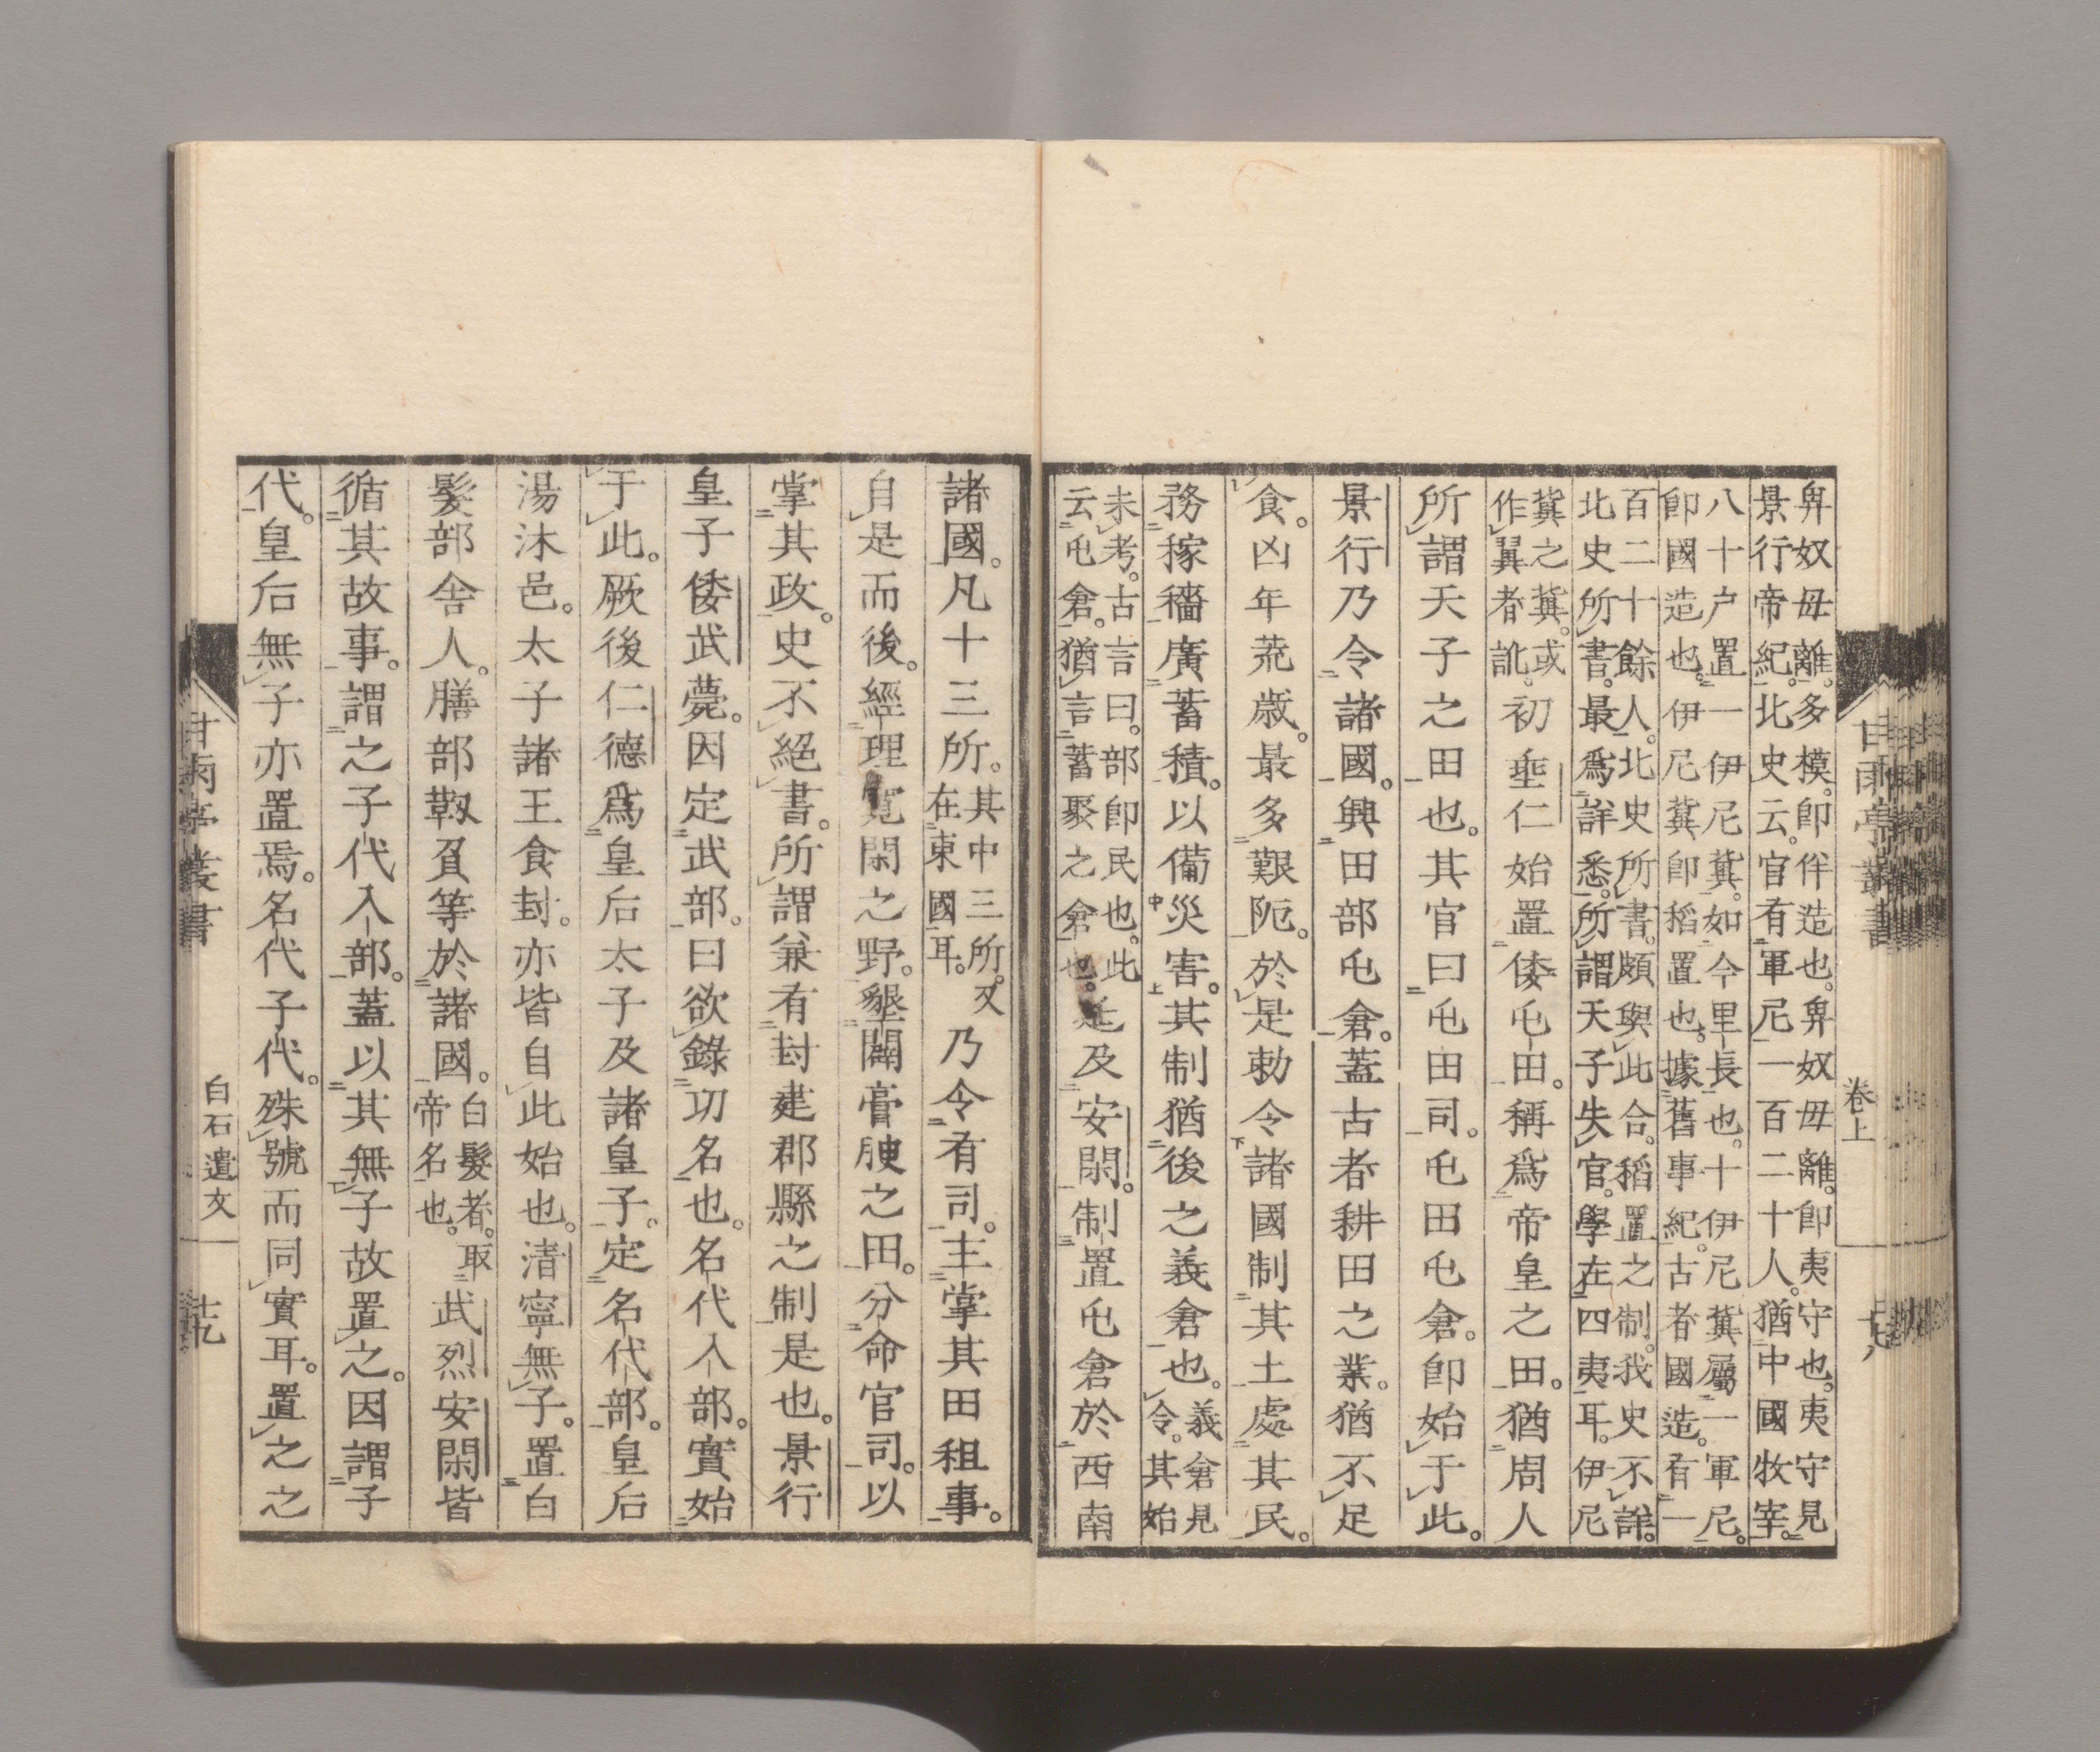 卑奴毋離。多模。卽伴造也。卑奴毋離。卽夷守也。夷守見
景行帝紀。北史云。官有軍尼一百二十人。猶中國牧宰。
八十户置一伊尼冀。如今里長也。十伊尼冀屬一軍尼。
卽國造也。伊尼冀卽稻置也。據舊事紀。古者國造。有一
百二十餘人。北史所書。頗與此合。稻置之制。我史不詳。
北史所書。最爲詳悉。所謂天子失官。學在四夷耳。伊尼
冀之冀。或
作翼者訛。
初垂仁始置倭屯田。稱爲帝皇之田。猶周人
所謂天子之田也。其官曰屯田司。屯田屯倉。卽始于此。
景行乃令諸國。興田部屯倉。蓋古者耕田之業。猶不足
食。凶年荒歲。最多艱阨。於是勅令諸國制其土處其民。
務稼穡廣蓄積。以備災害。其制猶後之義倉也。
義倉見
令。其始
未考。古言曰。部卽民也。此
云屯倉。猶言蓄聚之倉也。
迄及安閑。制置屯倉於西南
諸國。凡十三所。
其中三所。
在東國耳。
又乃令有司。主掌其田租事。
自是而後。經理寬閑之野。墾闢膏腴之田。分命官司。以
掌其政。史不絕書。所謂兼有封建郡縣之制是也。景行
皇子倭武薨。因定武部。曰欲錄功名也。名代入部。實始
于此。厥後仁德爲皇后太子及諸皇子。定名代部。皇后
湯沐邑。太子諸王食封。亦皆自此始也。清寧無子。置白
髮部舍人。膳部靱負等於諸國。
白髮者。取
帝名也。
武烈安閑皆
循其故事。謂之子代入部。蓋以其無子故置之。因謂子
代。皇后無子亦置焉。名代子代。殊號而同實耳。置之之
甘雨亭叢書
卷上
甘雨亭叢書
白石遺文